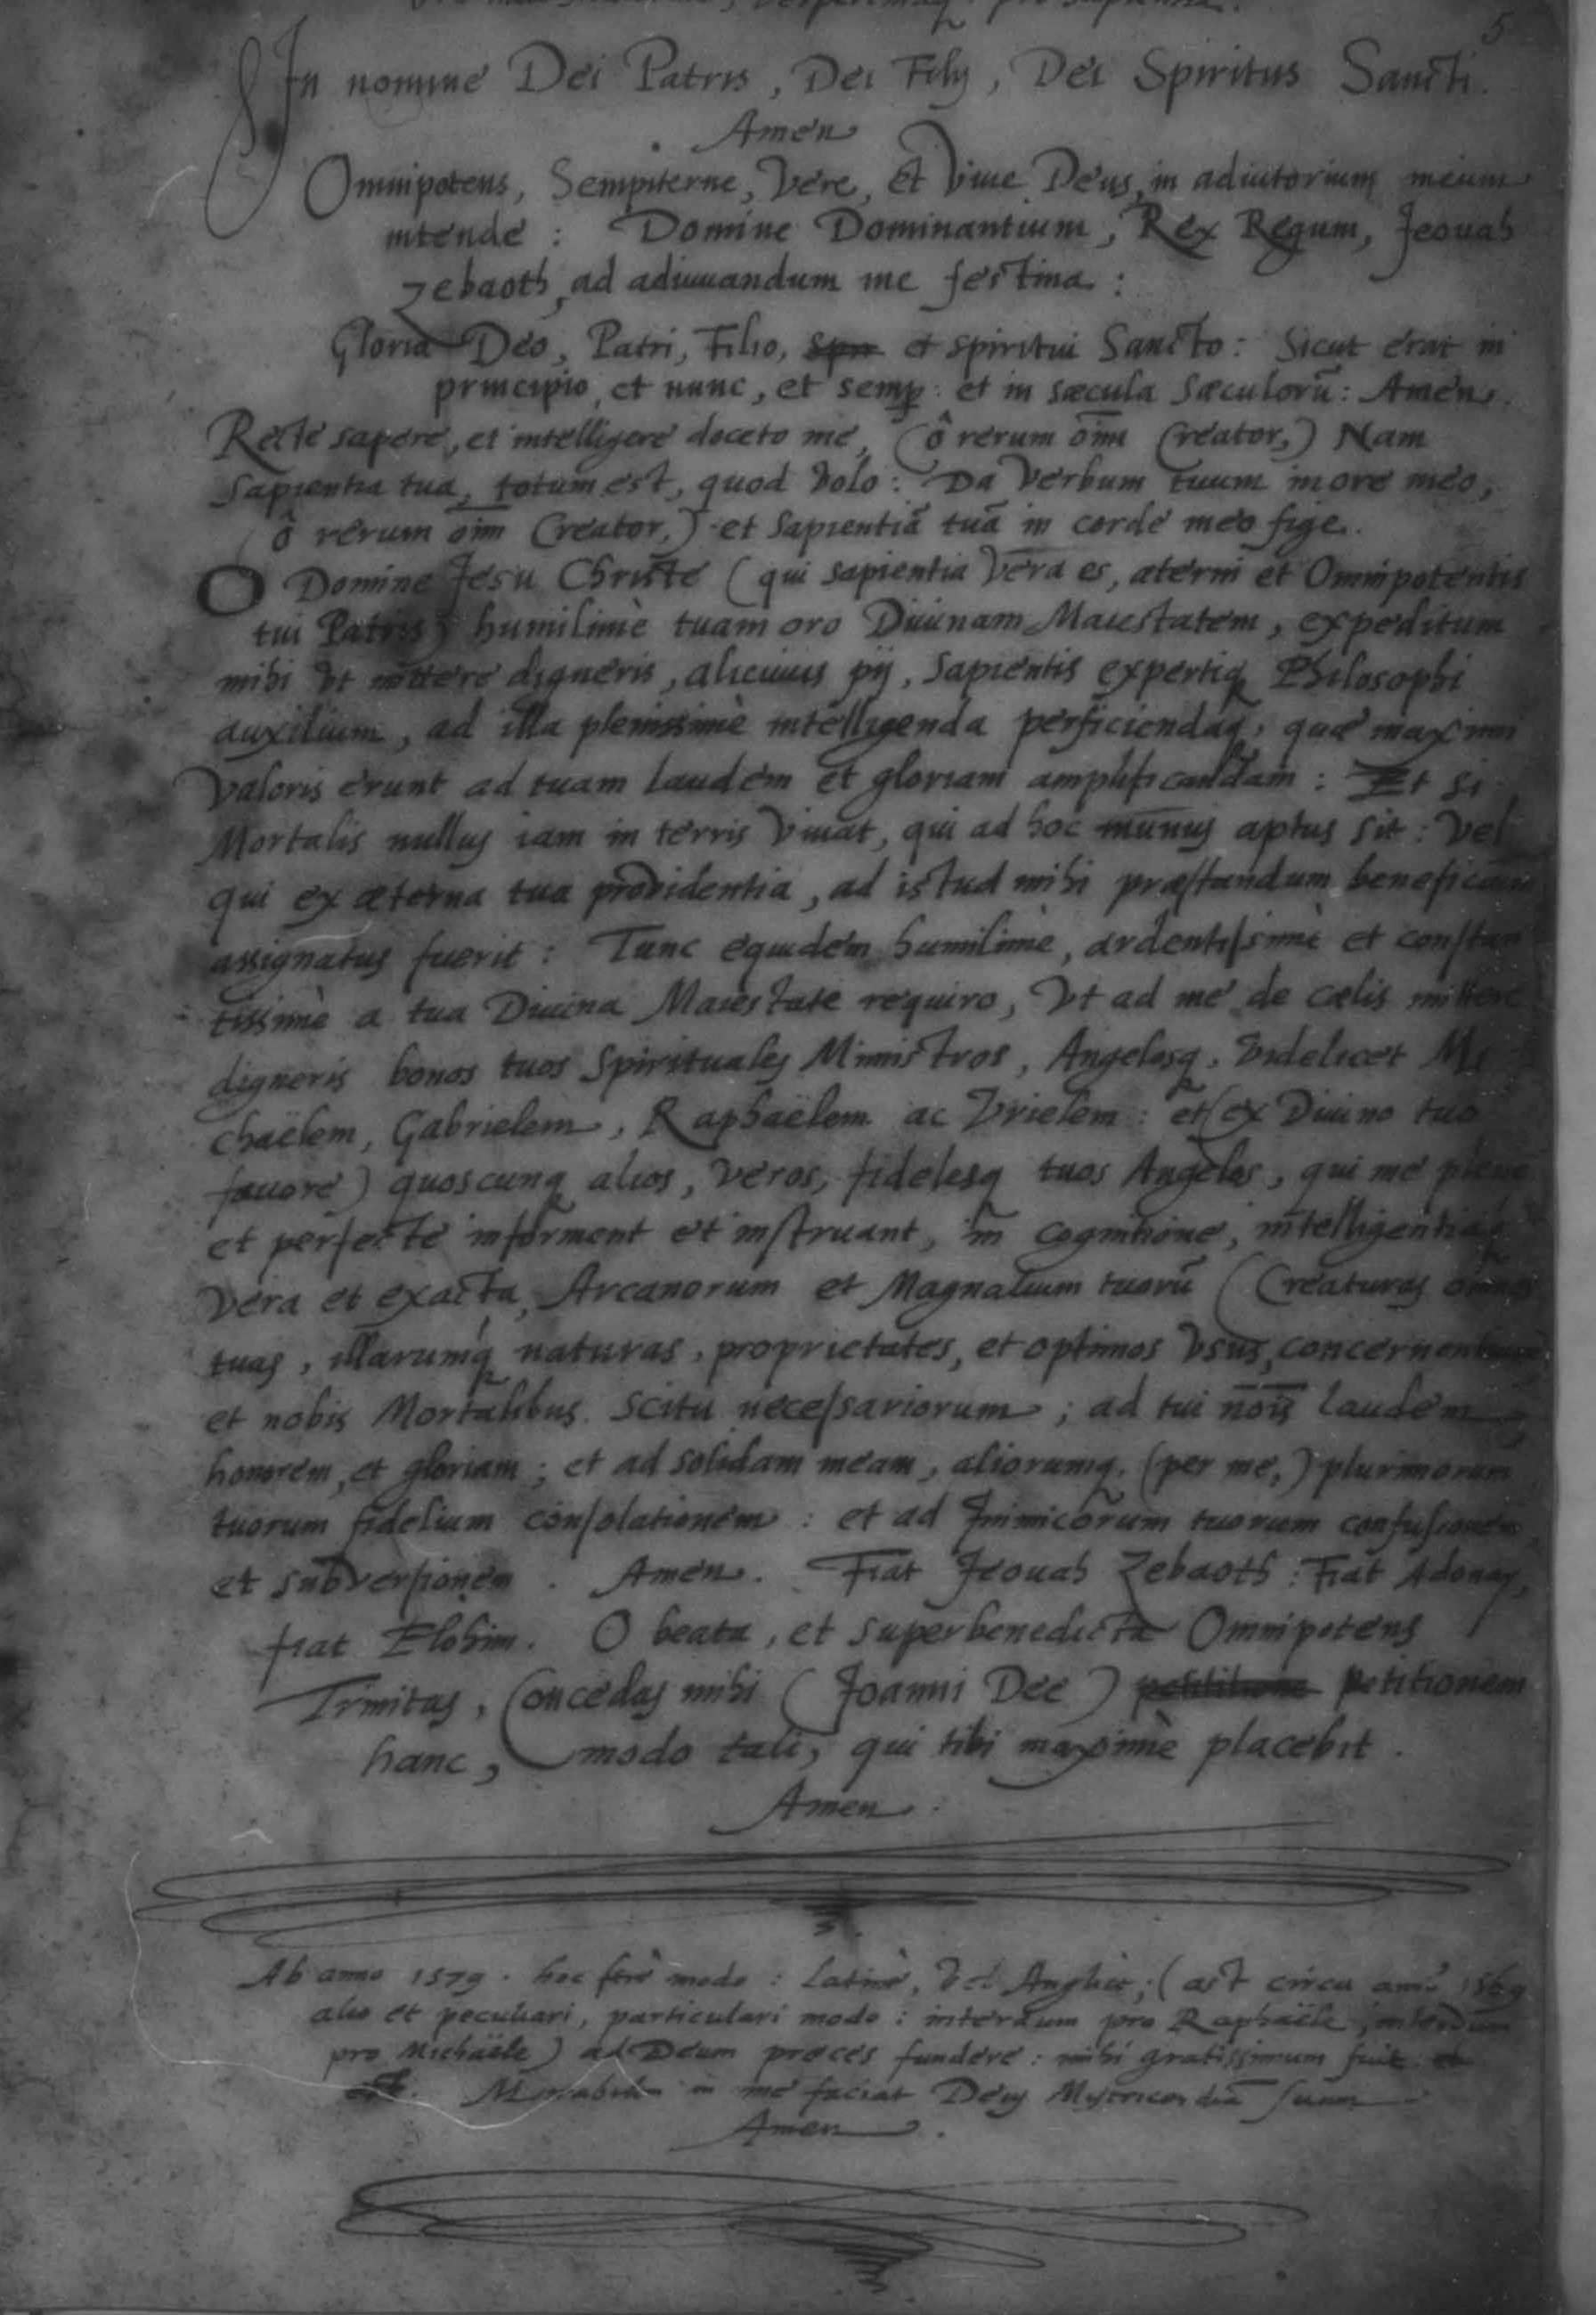 5
In nomine Dei Patris, Dei Filij, Dei Spiritus Sancti.
Amen
Omnipotens, Sempiterne, Vere, et Viue Deus, in adiutorium meum
intende : Domine Dominantium, Rex Regum, Jeouah
Zebaoth, ad adiuuandum me festina :
Gloria Deo, Patri, Filio, et spiritui Sancto : Sicut erat in
principio, et nunc, et semp : et in sæcula sæculorũ : Amen.
Recte sapere, et intelligere doceto me, (ô rerum oīm Creator,) Nam
Sapientia tua, totum est, quod volo : Da Verbum tuum in ore meo,
(ô rerum oīm Creator,) et sapientiã tuã in corde meo fige.
O Domine Jesu Christe (qui sapientia vera es, æterni et Omnipotentis
tui Patris) humilimè tuam oro Diuinam Maiestatem, expeditum
mihi vt mittere digneris, alicuius pij, Sapientis expertiq Philosophi
auxilium, ad illa plenissimè intelligenda perficiendaq, quæ maximi
valoris erunt ad tuam laudem et gloriam amplificandam : Et si
Mortalis nullus iam in terris viuat, qui ad hoc munus aptus sit : vel
qui ex æterna tua providentia, ad istud mihi præstandum beneficium
assignatus fuerit : Tunc equidem humilimè, ardentissimè et constan
tissimè a tua Diuina Maiestate requiro, Vt ad me de cælis mittere
digneris bonos tuos Spirituales Ministros, Angelosq, videlicet Mi
chaëlem, Gabrielem, Raphaëlem ac Vrielem : et (ex Diuino tuo
fauore) quoscunq alios, veros, fidelesq tuos Angelos, qui me plene
et perfecte informent et instruant, in cognitione, intelligentiaq
vera et exacta, Arcanorum et Magnalium tuorũ (Creaturas omnes
tuas, illarumq naturas, proprietates, et optimos vsus, concernentium)
et nobis Mortalibus scitu necessariorum ; ad tui nōīs laudem,
honorem, et gloriam ; et ad solidam meam, aliorumq, (per me,) plurimorum
tuorum fidelium consolationem : et ad Inimicorum tuorum confusionem,
et subversionem . Amen. Fiat Jeouah Zebaoth : Fiat Adonay,
fiat Elohim. O beata, et superbenedicta Omnipotens
Trinitas, Concedas mihi (Joanni Dee) petitionem
hanc, modo tali, qui tibi maximè placebit .
Amen .
Ab anno 1579 . hoc ferè modo : Latinè, vel Anglicè ; (ast circa annū 1569
alio et peculiari, particulari modo : interdum pro Raphaële, interdum
pro Michaële) ad Deum preces fundere : mihi gratissimum fuit :
Mirabilem in me faciat Deus Misericordiã suam
Amen .